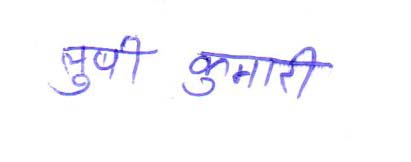 सुवी कुमारी